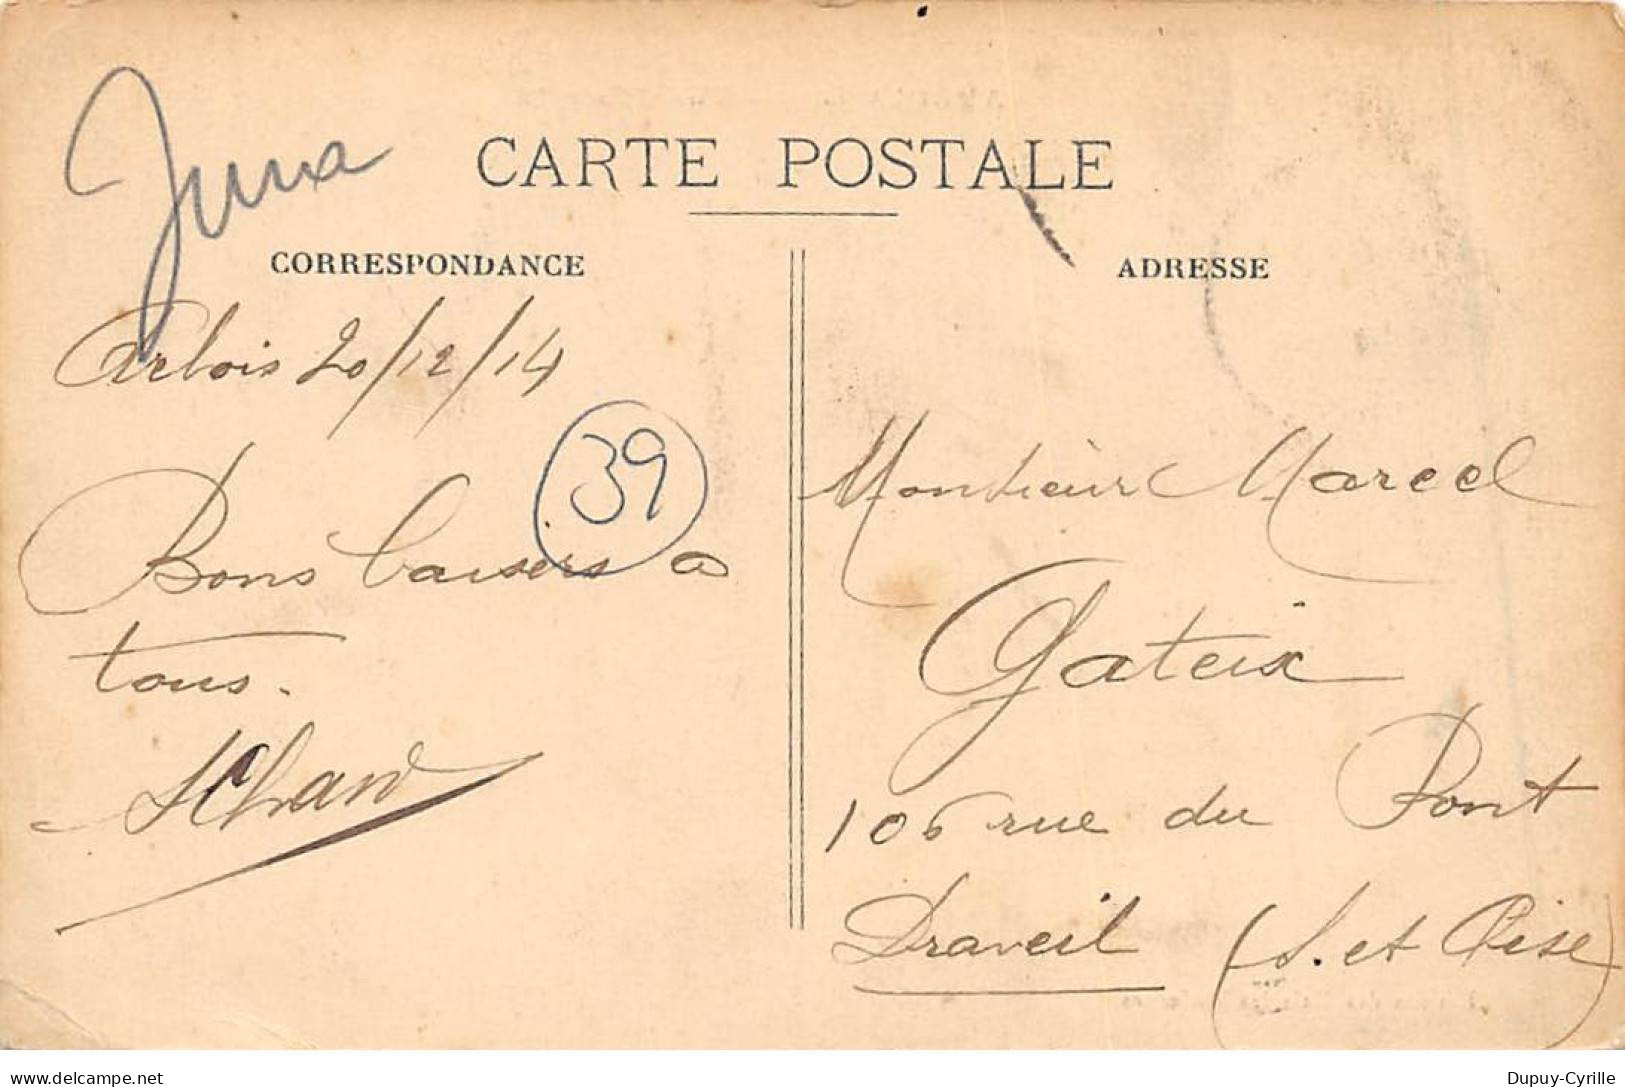 Jura
CARTE POSTALE
CORRESPONDANCE
Arbois 20/12/14
39
Bons baisers a
tous.
ADRESSE
Monsieur Marcel
Gateix
106 rue du Pont
Draveil (S. et Oise)
delcampe.net
Dupuy-Cyrille